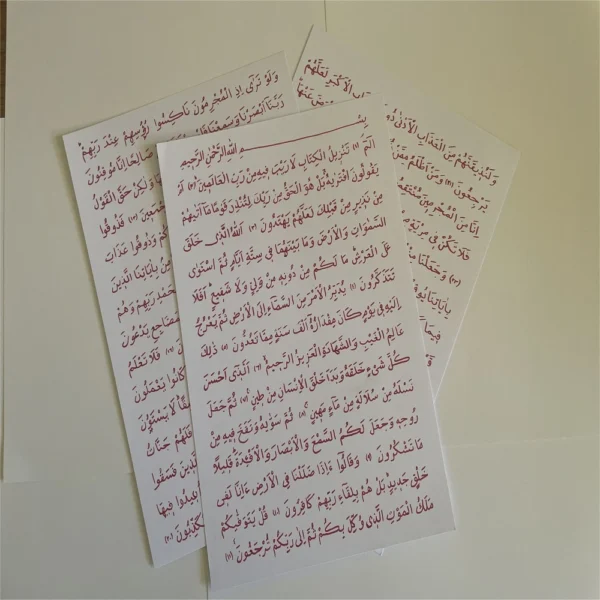 بسم الله الرحمن الرحيم
الٓمٓ (١) تَنْزِيلُ الْكِتَابِ لَا رَيْبَ فِيهِ مِنْ رَبِّ الْعَالَمِينَ (٢) اَمْ
يَقُولُونَ افْتَرٰيهُ بَلْ هُوَ الْحَقُّ مِنْ رَبِّكَ لِتُنْذِرَ قَوْمًا مَٓا اَتٰيهُمْ
مِنْ نَذِيرٍ مِنْ قَبْلِكَ لَعَلَّهُمْ يَهْتَدُونَ (٣) اَللّٰهُ الَّذِي خَلَقَ
السَّمٰوَاتِ وَالْاَرْضَ وَمَا بَيْنَهُمَا فِي سِتَّةِ اَيَّامٍ ثُمَّ اسْتَوٰى
عَلَى الْعَرْشِ مَا لَكُمْ مِنْ دُونِهِ مِنْ وَلِيٍّ وَلَا شَفِيعٍ اَفَلَا
تَتَذَكَّرُونَ (٤) يُدَبِّرُ الْاَمْرَ مِنَ السَّمَٓاءِ اِلَى الْاَرْضِ ثُمَّ يَعْرُجُ
اِلَيْهِ فِي يَوْمٍ كَانَ مِقْدَارُهُٓ اَلْفَ سَنَةٍ مِمَّا تَعُدُّونَ (٥) ذٰلِكَ
عَالِمُ الْغَيْبِ وَالشَّهَادَةِ الْعَزِيزُ الرَّحِيمُ (٦) اَلَّذِٓي اَحْسَنَ
كُلَّ شَيْءٍ خَلَقَهُ وَبَدَاَ خَلْقَ الْاِنْسَانِ مِنْ طِينٍ (٧) ثُمَّ جَعَلَ
نَسْلَهُ مِنْ سُلَالَةٍ مِنْ مَٓاءٍ مَهِينٍ (٨) ثُمَّ سَوّٰيهُ وَنَفَخَ فِيهِ مِنْ
رُوحِهِ وَجَعَلَ لَكُمُ السَّمْعَ وَالْاَبْصَارَ وَالْاَفْـِٔدَةَ قَلِيلًا
مَا تَشْكُرُونَ (٩) وَقَالُٓوا ءَاِذَا ضَلَلْنَا فِي الْاَرْضِ ءَاِنَّا لَفِي
خَلْقٍ جَدِيدٍ بَلْ هُمْ بِلِقَٓاءِ رَبِّهِمْ كَافِرُونَ (١٠) قُلْ يَتَوَفّٰيكُمْ
مَلَكُ الْمَوْتِ الَّذِي وُكِّلَ بِكُمْ ثُمَّ اِلٰى رَبِّكُمْ تُرْجَعُونَ (١١)
وَلَوْ تَرٰٓى اِذِ الْمُجْرِمُونَ نَاكِسُوا رُؤُ۫سِهِمْ عِنْدَ رَبِّهِمْ
رَبَّنَٓا اَبْصَرْنَا وَسَمِعْنَا صَالِحًا اِنَّا مُوقِنُونَ
وَلٰكِنْ حَقَّ الْقَوْلُ
فَذُوقُوا
وَذُوقُوا عَذَابَ
بِاٰيَاتِنَا الَّذِينَ
رَبِّهِمْ وَهُمْ
يَدْعُونَ
فَلَا تَعْلَمُ
كَانُوا يَعْمَلُونَ
لَا يَسْتَوُ۫نَ
فَلَهُمْ جَنَّاتُ
الَّذِينَ فَسَقُوا
اُعِيدُوا فِيهَا
لَعَلَّهُمْ
وَلَنُذِيقَنَّهُمْ مِنَ الْعَذَابِ الْاَدْنٰى
يَرْجِعُونَ (٢١) وَمَنْ اَظْلَمُ مِمَّنْ
اِنَّا مِنَ الْمُجْرِمِينَ
فَلَا تَكُنْ فِي مِرْيَةٍ
(٢٣) وَجَعَلْنَا